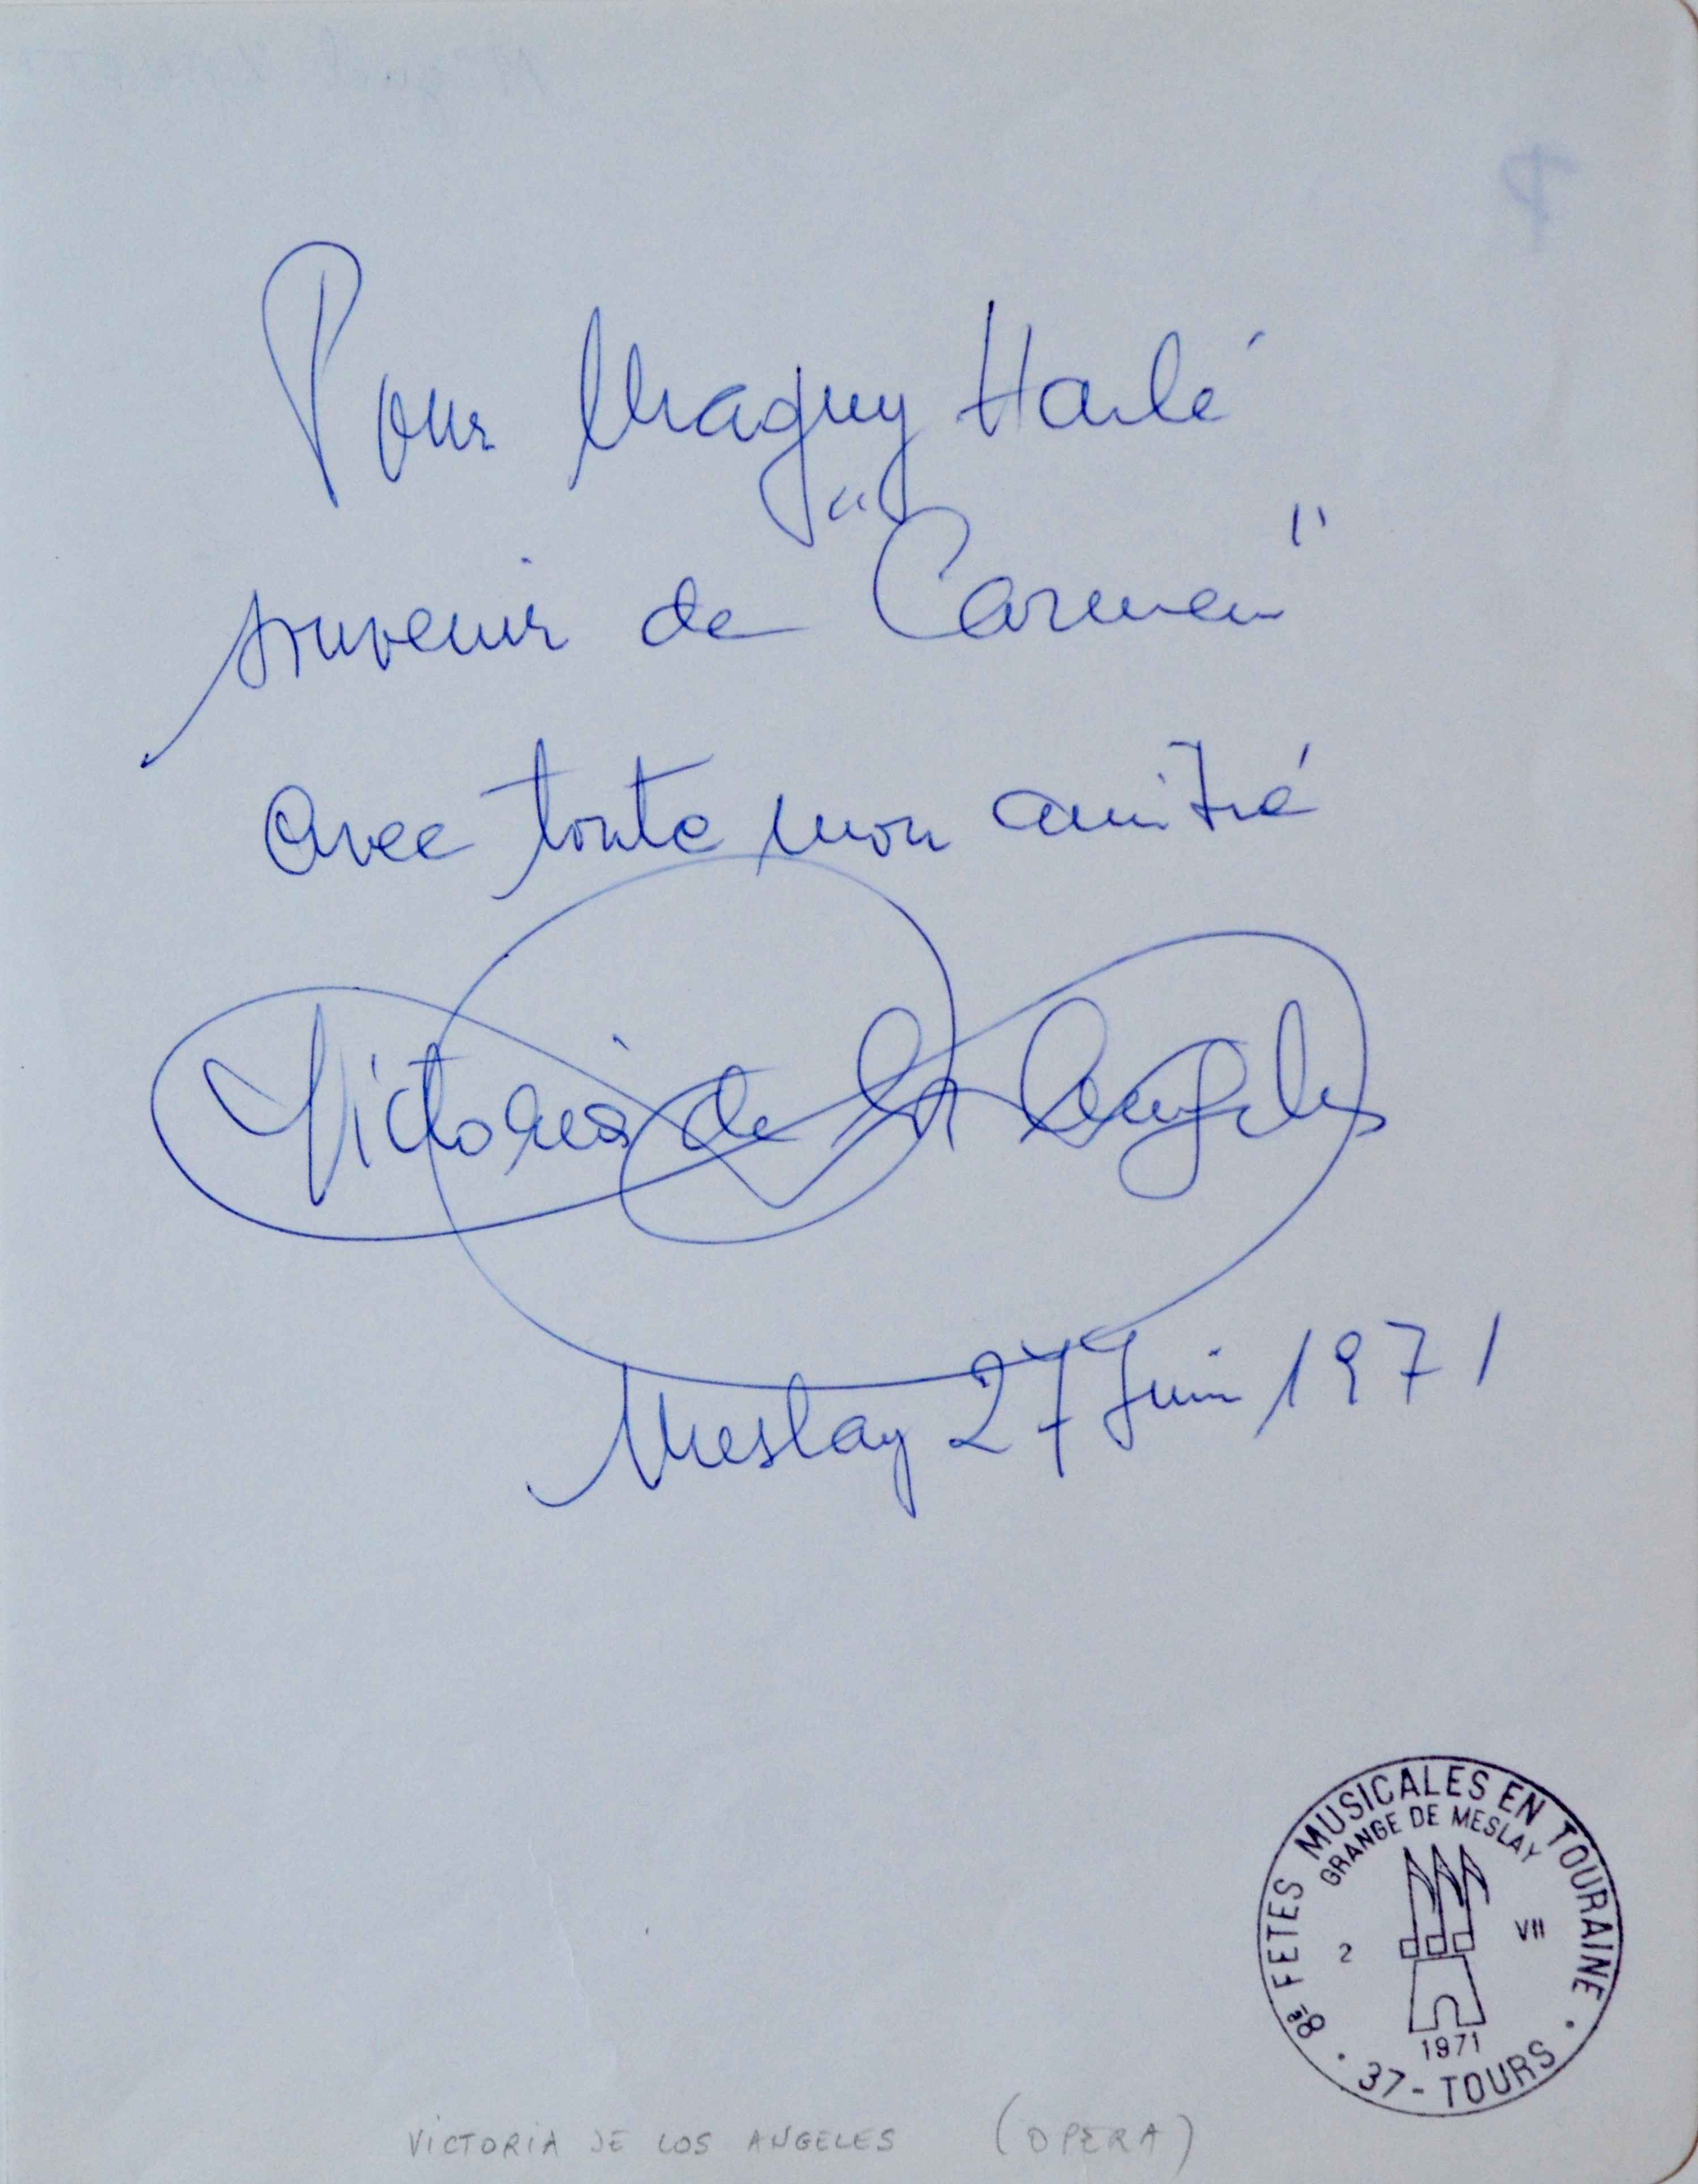 Pour Maguy Harlé
souvenir de "Carmen"
avec toute mon amitié
Victoria de los Angeles
Meslay 27 Juin 1971
8è FETES MUSICALES EN TOURAINE
GRANGE DE MESLAY
2 VII
1971
• 37 - TOURS •
VICTORIA DE LOS ANGELES (OPERA)